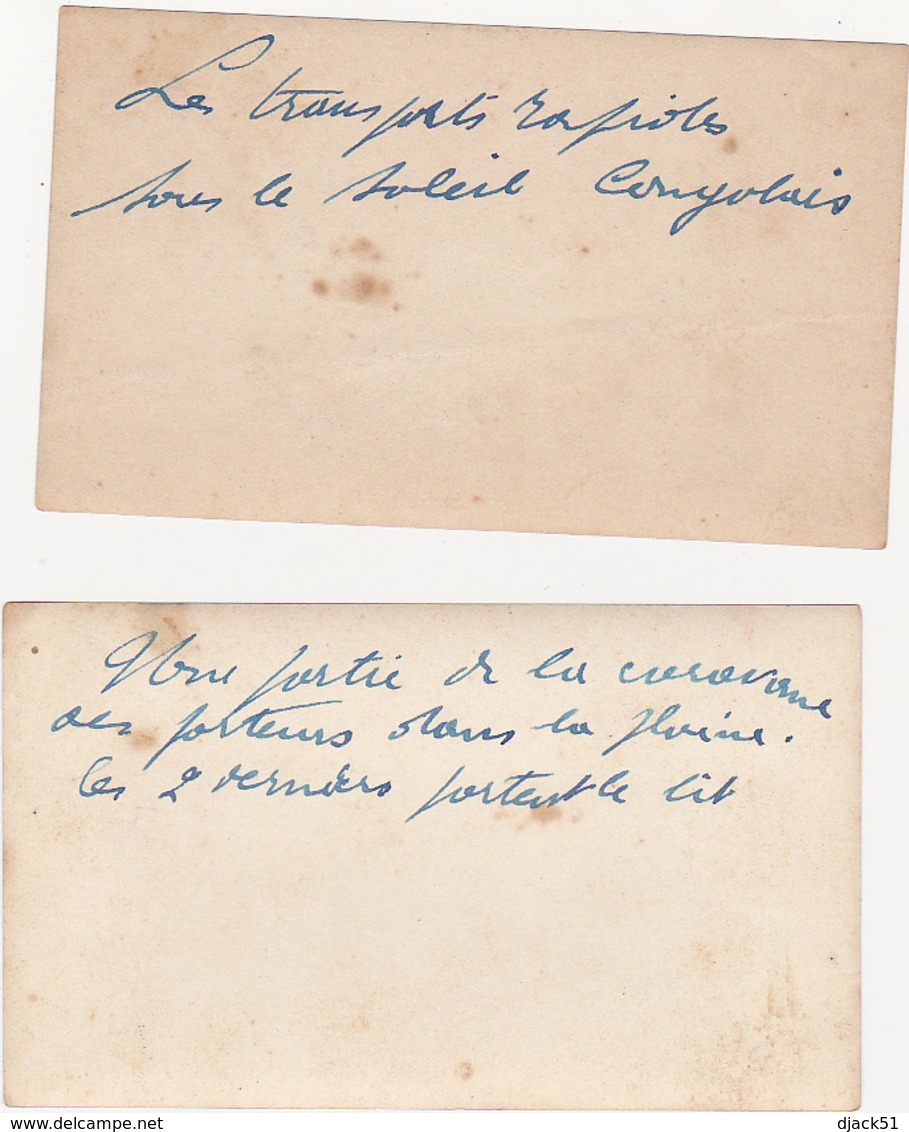 Les transports rapides
sous le soleil Congolais
Une partie de la caravane
des porteurs dans la plaine.
les 2 derniers portent le lit
delcampe.net
djack51